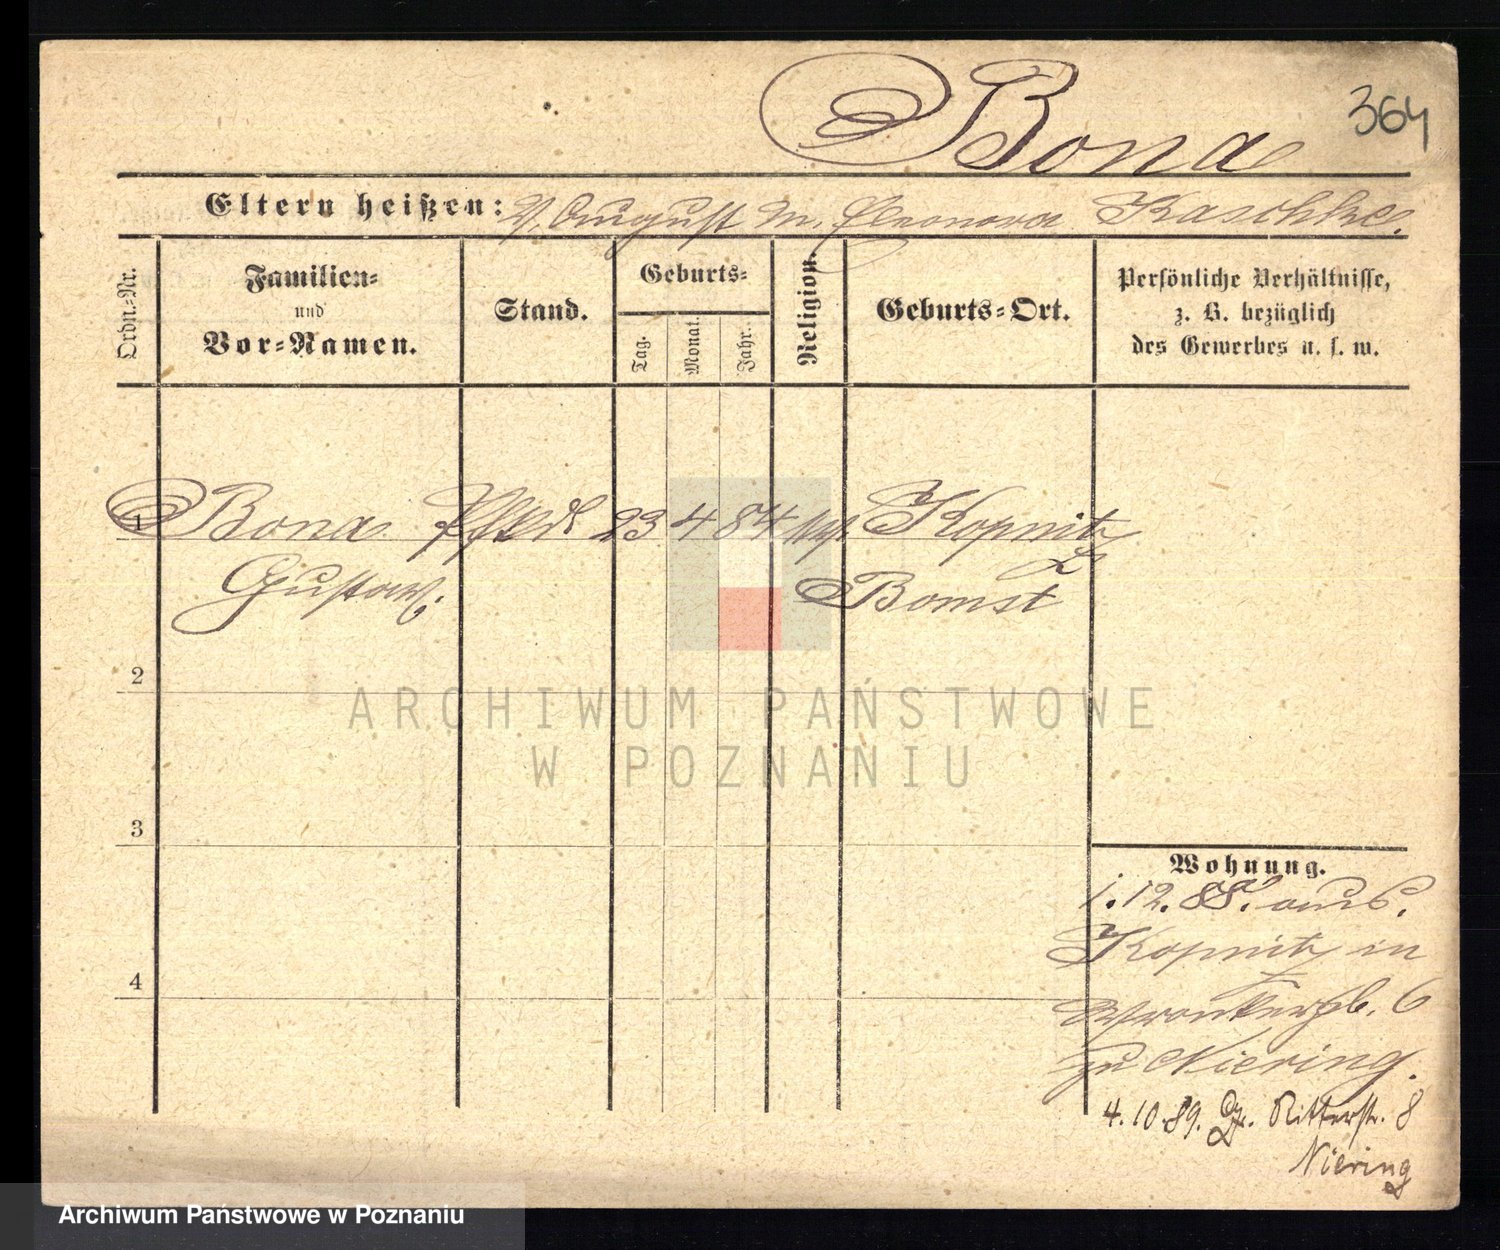 364
Bona
Eltern heißen: V. August M. Eleonora Kaschke.
Ordn.-Nr.
Familien-
und
Vor-Namen.
Stand.
Geburts-
Tag.
Monat.
Jahr.
Religion.
Geburts-Ort.
Persönliche Verhältnisse,
z. B. bezüglich
des Gewerbes u. s. w.
1
Bona 23 4 84 Kopnitz
Gustav. Bomst
2
ARCHIWUM PAŃSTWOWE
W POZNANIU
3
Wohnung.
1. 12. 88. aus
Kopnitz in
6
zu Niering.
4
4. 10. 89. Ritterstr. 8
Niering
Archiwum Państwowe w Poznaniu